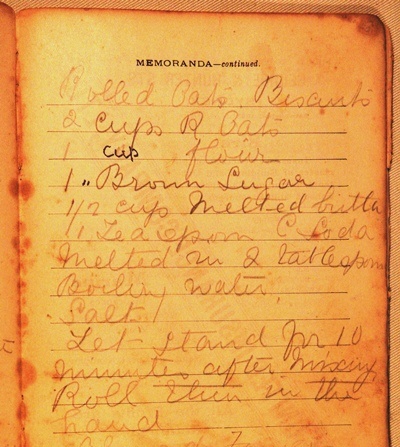 MEMORANDA—continued.
Rolled Oats. Biscuits
2 cups R Oats
1 cup flour
1 " Brown Sugar
1/2 cup Melted butta
1 Tea spoon C Soda
Melted in 2 tablespoons
Boiling water.
Salt.
Let stand for 10
minutes after mixing
Roll then in the
hand